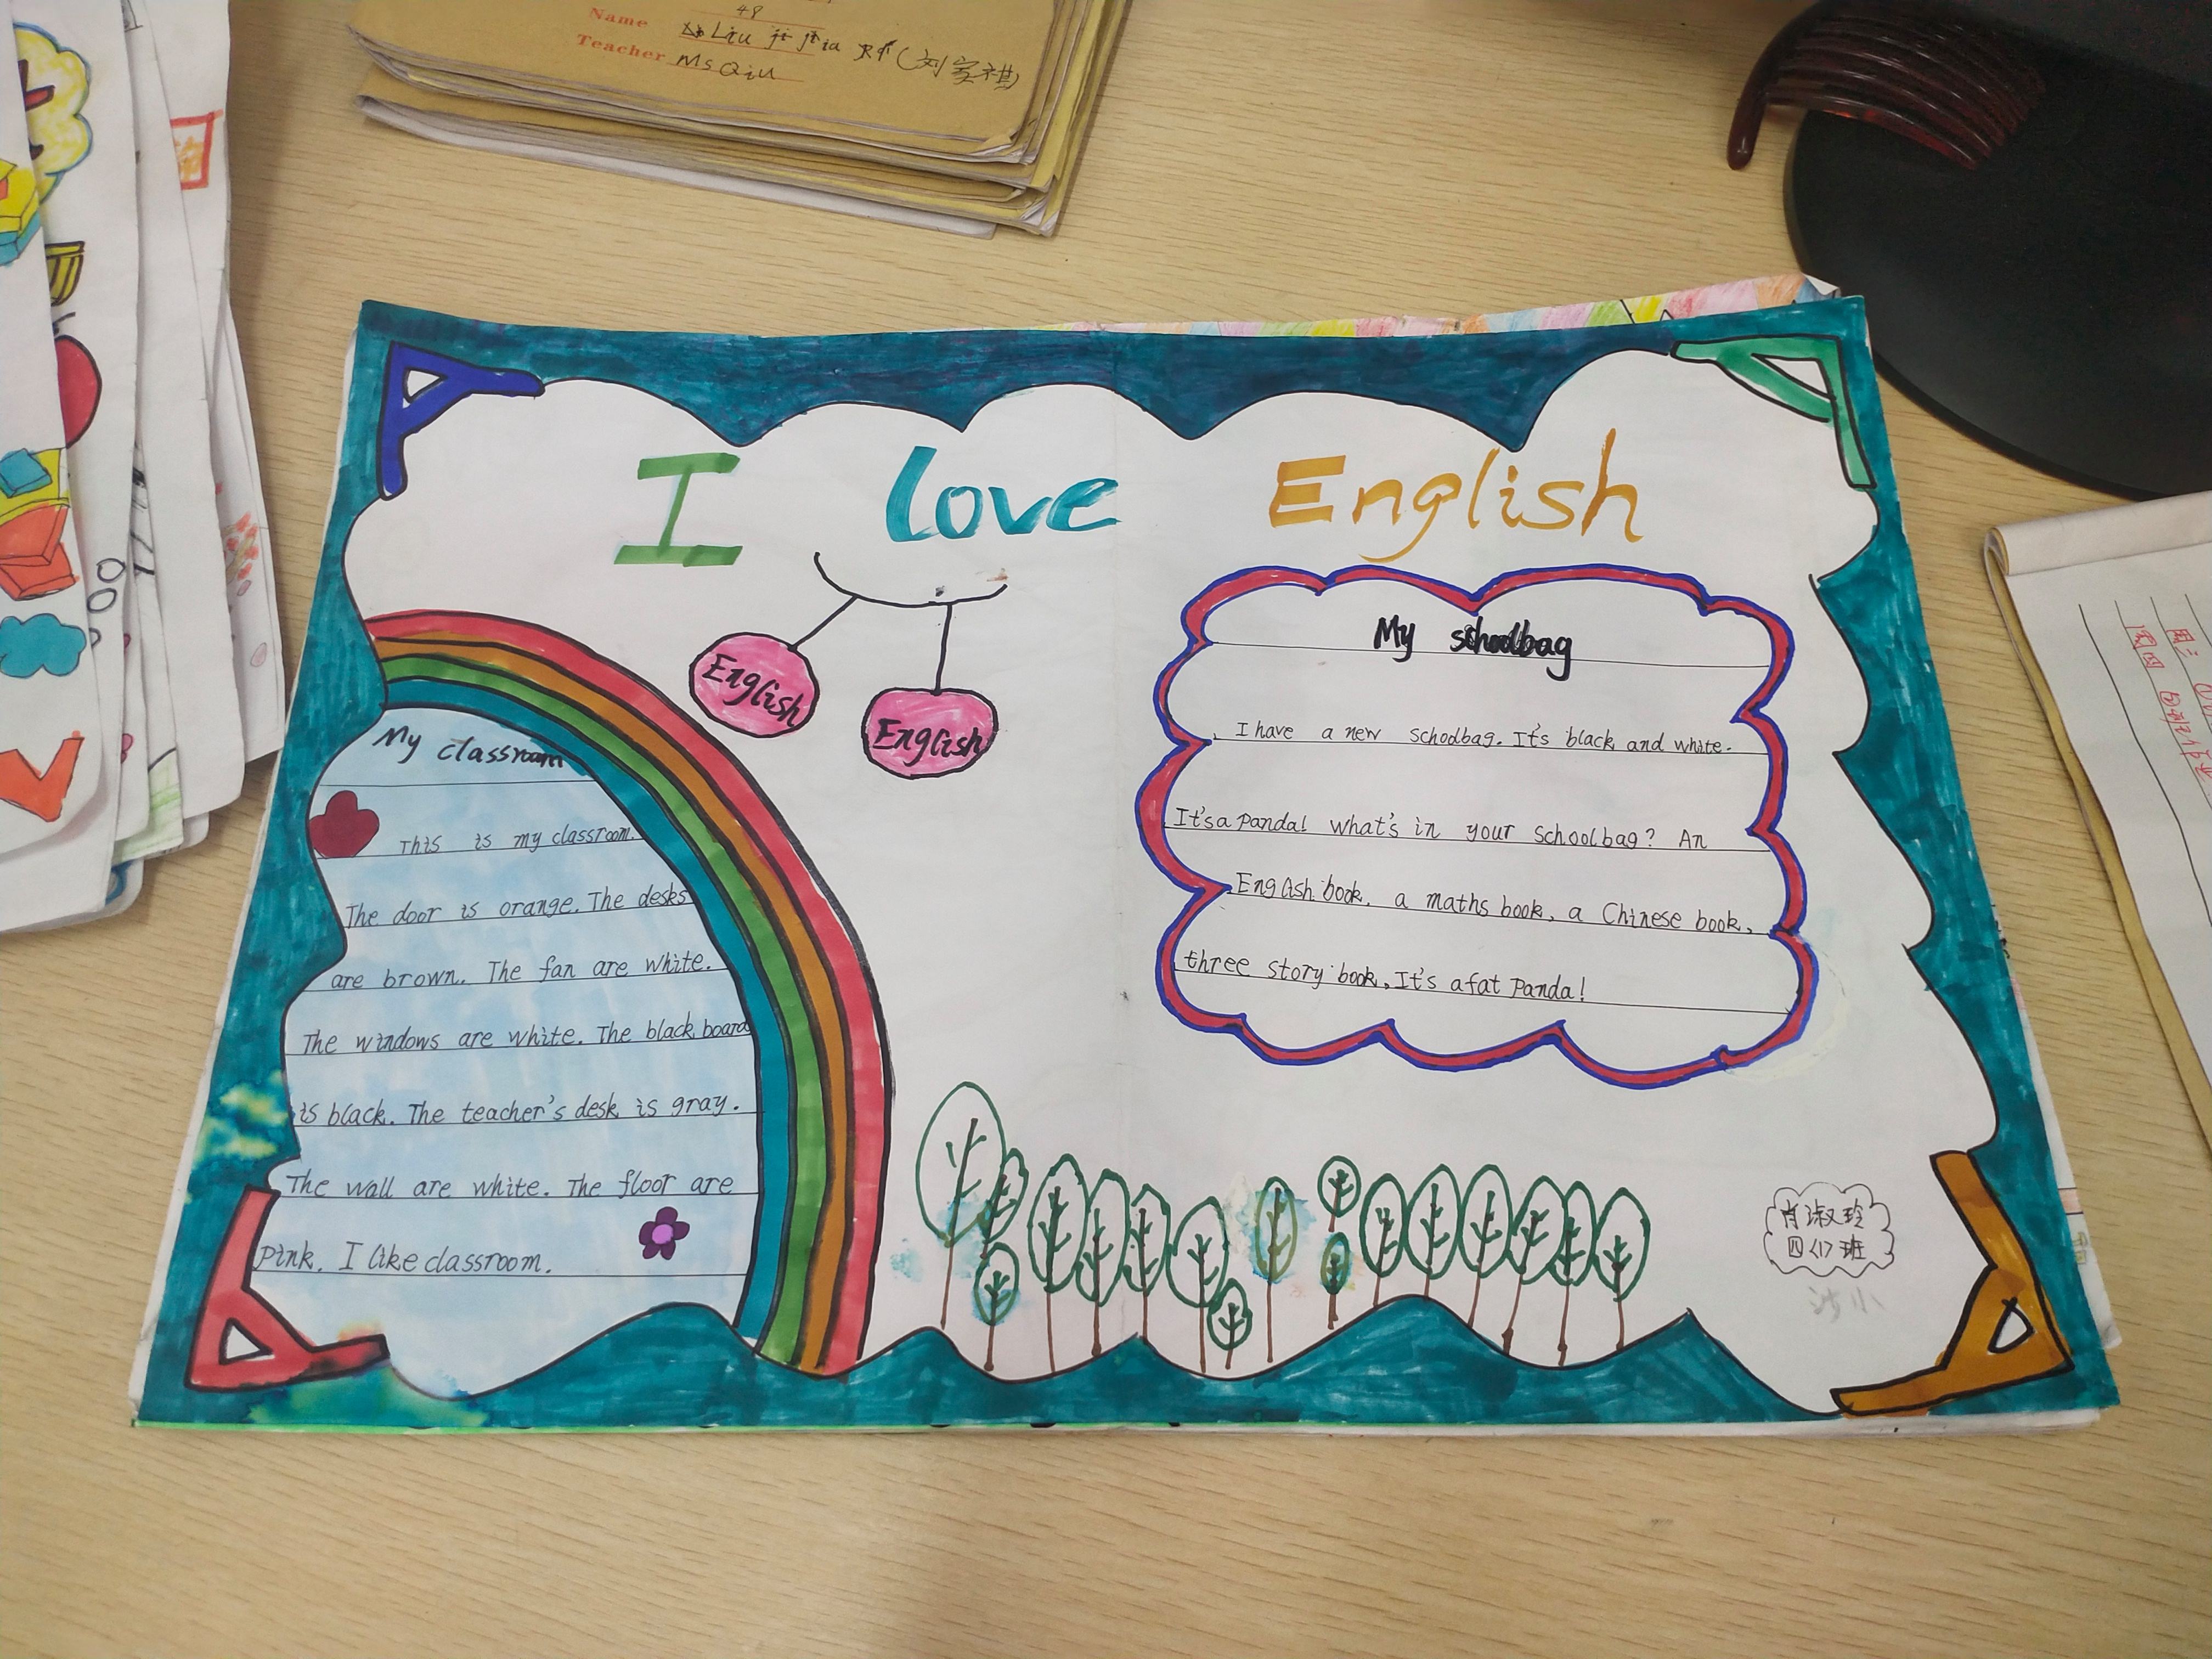 48
Name Liu
Teacher Ms Qiu
(刘家祺)
I love English
English
English
My classroom
This is my classroom.
The door is orange. The desks
are brown. The fan are white.
The windows are white. The black board
is black. The teacher's desk is gray.
The wall are white. The floor are
pink. I like classroom.
My schoolbag
I have a new schoolbag. It's black and white.
It's a Panda! What's in your schoolbag? An
English book, a maths book, a Chinese book,
three story book, It's a fat Panda!
肖淑玲
四〈1〉班